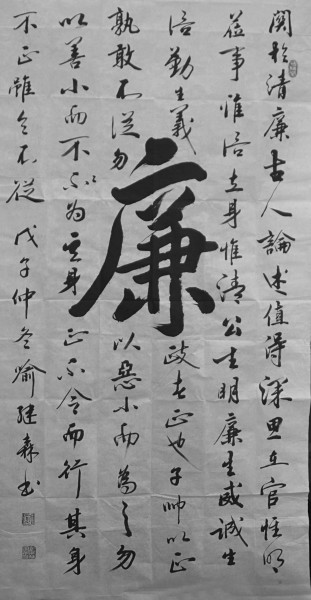 關於清廉古人論述值得深思在官惟明
莅事惟信立身惟清公生明廉生威誠生
信勤生義政者正也子帥以正
孰敢不從勿以惡小而為之勿
以善小而不為其身正不令而行其身
不正雖令不從戊子仲冬喻继森书
廉